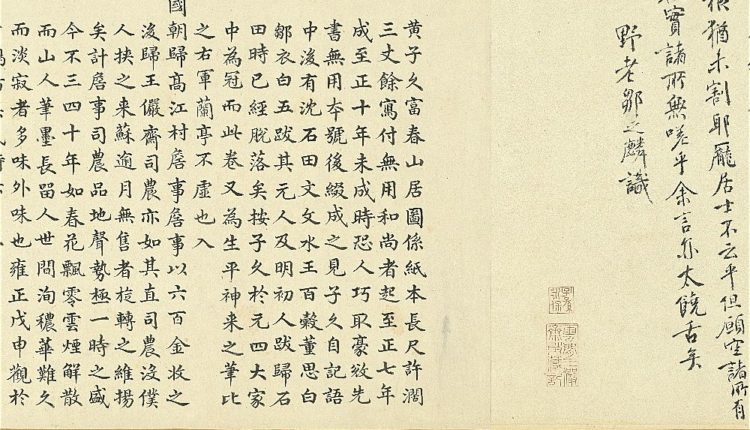 根猶未割耶龐居士不云乎但願空諸所有
實諸所無嗟乎余言亦太饒舌矣
野老鄒之麟識
黃子久富春山居圖係紙本長尺許濶
三丈餘寫付無用和尚者起至正七年
成至正十年未成時恐人巧取豪敚先
書無用夲號後綴成之見子久自記語
中後有沈石田文文水王百穀董思白
鄒衣白五跋其元人及明初人跋歸石
田時已經脫落矣按子久於元四大家
中為冠而此卷又為生平神来之筆比
之右軍蘭亭不虛也入
國朝歸高江村詹事詹事以六百金收之
後歸王儼齋司農亦如其直司農沒僕
人挾之来蘇逾月無售者旋轉之維揚
矣計詹事司農品地聲勢極一時之盛
今不三四十年如春花飄零雲煙解散
而山人筆墨長留人世間洵穠華難久
而淡寂者多味外味也雍正戊申觀於